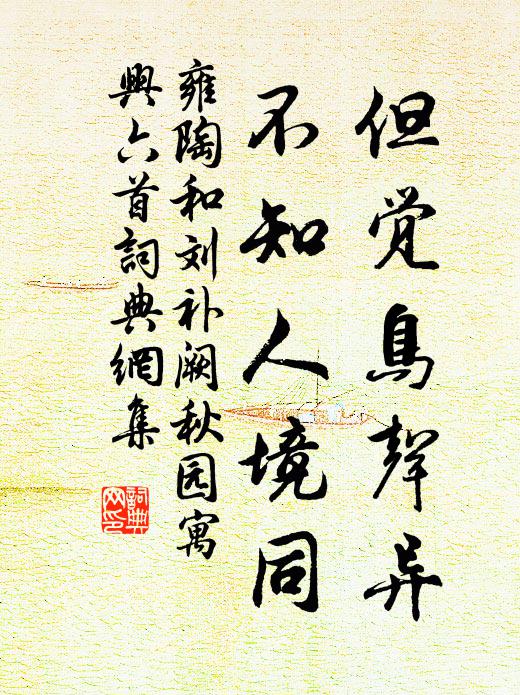 但觉鳥聲异
不知人境同
雍陶和刘补阙秋园寓
興六首詞典網集
詞典
网印